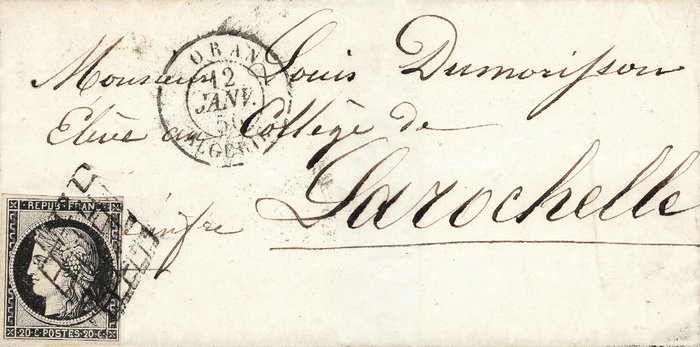 ORAN
12
JANV.
50
ALGÉRIE
Monsieur Louis Dumorisson
Elève au Collège de
Larochelle
REPUB. FRANC.
20 c POSTES 20 c